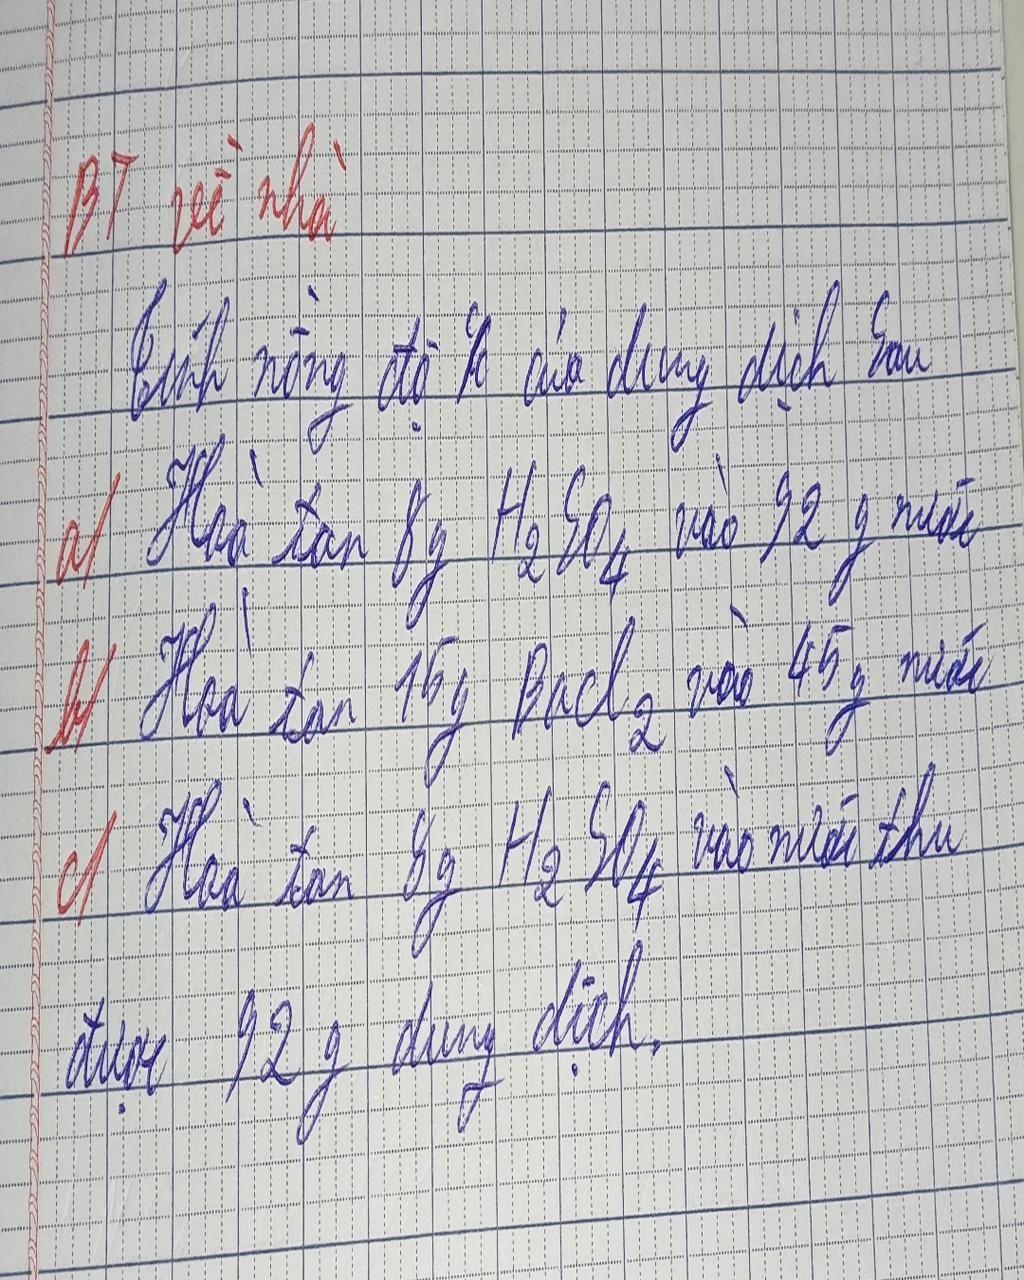 BT về nhà
Tính nồng độ % của dung dịch sau
a/ Hoà tan 8g H₂SO₄ vào 92 g nước
b/ Hoà tan 15g BaCl₂ vào 45g nước
c/ Hoà tan 8g H₂SO₄ vào nước thu
được 92 g dung dịch.